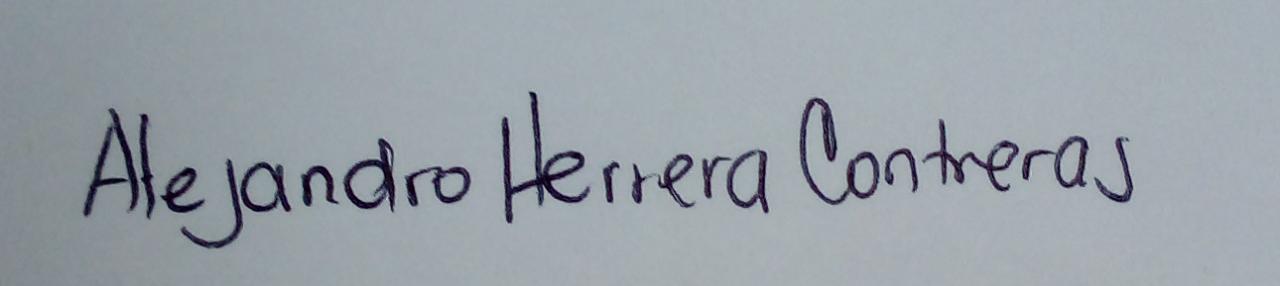 Alejandro Herrera Contreras